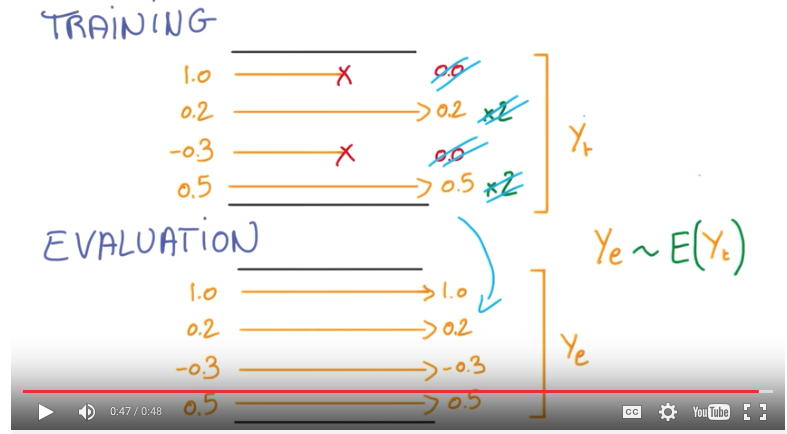 TRAINING
1.0 0.0
0.2 0.2 x2
-0.3 0.0
0.5 0.5 x2
Yt
EVALUATION
Ye ~ E(Yt)
1.0 1.0
0.2 0.2
-0.3 -0.3
0.5 0.5
Ye
0:47 / 0:48
CC
YouTube